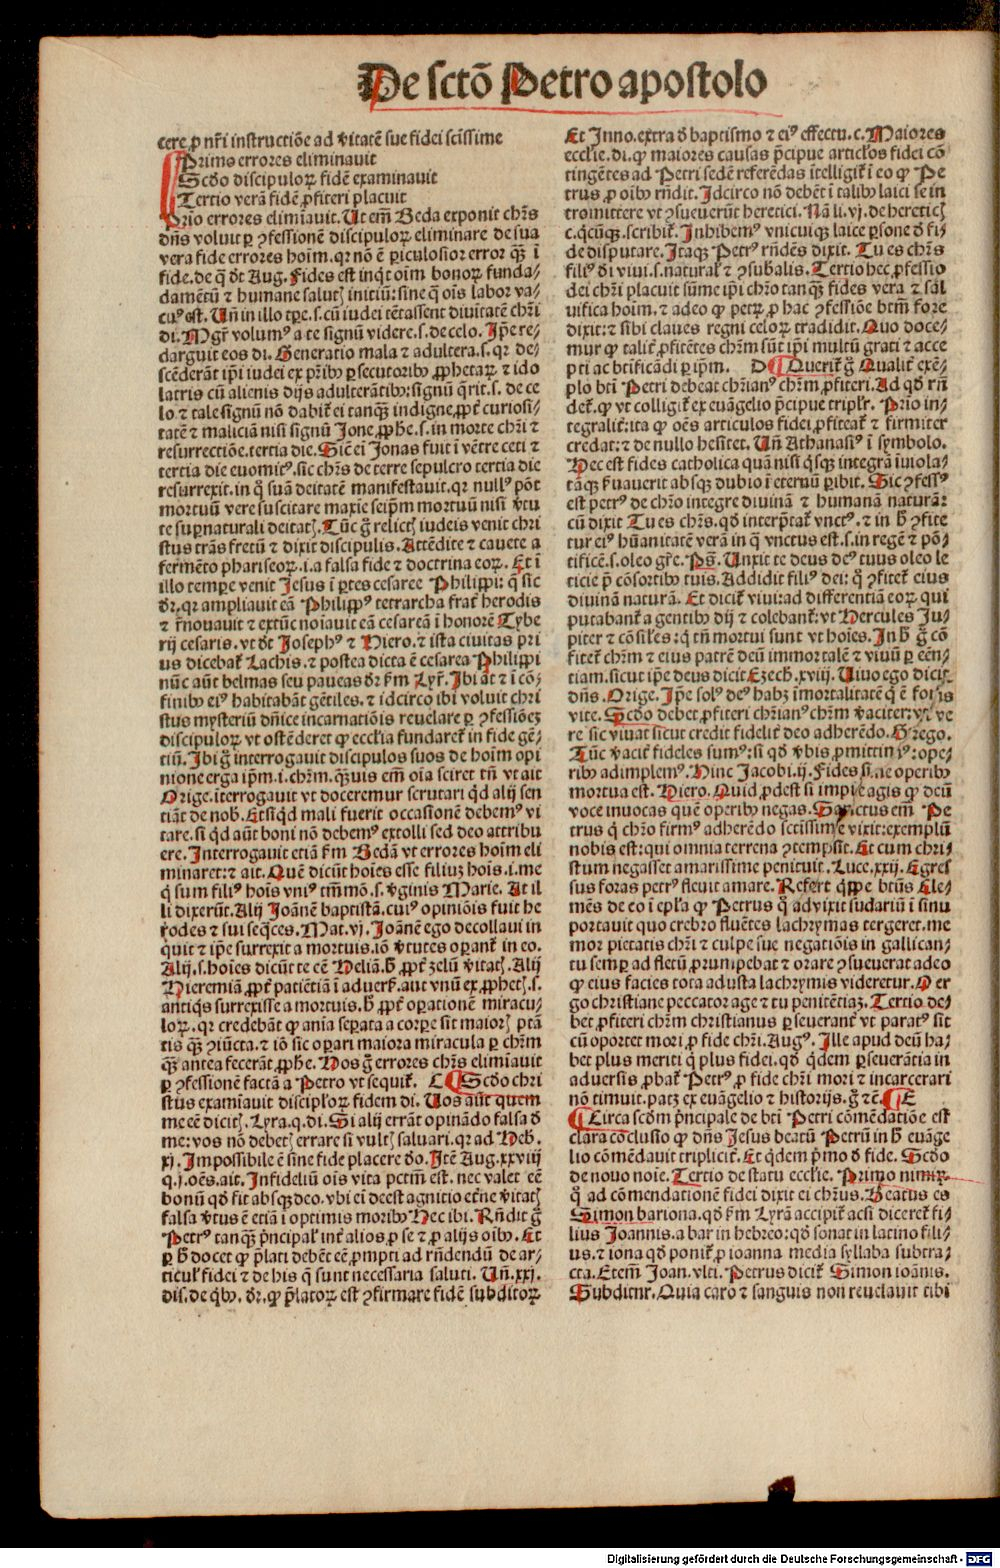 De sctō Petro apostolo
cere ꝓ nr̄i instructiōe ad v̄itatē sue fidei sc̄issime
Primo errores eliminauit
Scd̄o discipuloꝝ fidē examinauit
Tertio verā fidē ꝓfiteri placuit
Prio errores elimīauit. Ut em̄ Beda exponit chr̄s
dn̄s voluit ꝑ ꝯfessionē discipuloꝝ eliminare de sua
vera fide errores hoim̄. qꝛ nō ē ꝑiculosior error qꝫ ī
fide. de q̄ dt̄ Aug. Fides est inq̇t oīm bonoꝝ funda⸗
damētū ⁊ humane saluti initiū: sine q̄ oīs labor va⸗
cuꝰ est. Un̄ in illo tꝑe. s. cū iudei tētassent diuītatē chr̄i
di. Mgr̄ volumꝰ a te signū videre. s. de celo. Ip̄e re⸗
darguit eos di. Generatio mala ⁊ adultera. s. qꝛ de⸗
scēderāt ip̄i iudei ex pr̄ibꝰ ꝑsecutoribꝰ ꝓphetaꝝ ⁊ ido
latris cū alienis dijs adulterātibꝰ: signū q̄rit. s. de ce
lo ⁊ tale signū nō dabit̉ ei tanqꝫ indigne, ꝓpt̉ curiosi⸗
tatē ⁊ maliciā nisi signū Jone ꝓphe. s. in morte chr̄i ⁊
resurrectiōe. tertia die. Sic ei̅ Jonas fuit ī vētre ceti ⁊
tertia die euomitꝰ. sic chr̄s de terre sepulcro tertia die
resurrexit. in q̄ suā deitatē manifestauit. qꝛ nullꝰ pōt
mortuū vere suscitare maxīe seip̄m mortuū nisi v̄tu
te suꝑnaturali deitatꝭ. Tūc g̊ relictꝭ iudeis venit chri
stus trās fretū ⁊ dixit discipulis. Attēdite ⁊ cauete a
fermēto phariseoꝝ. i. a falsa fide ⁊ doctrina eoꝝ. Et ī
illo tempe venit Jesus ī ꝑtes cesaree Philippi: q̄ sic
dr̄. qꝛ ampliauit eā Philippꝰ tetrarcha frat̉ herodis
⁊ r̄nouauit ⁊ extūc noīauit eā cesareā ī honorē Tybe
rij cesaris. vt dt̄ Josephꝰ ⁊ Hiero. ⁊ ista ciuitas pri
us dicebat̉ Lachis. ⁊ postea dicta ē cesarea Philippi
nūc aūt belmas seu paueas dr̄ ẜm Lyr̄. Ibi āt ⁊ ī cō⸗
finibꝰ eiꝰ habitabāt gētiles. ⁊ idcirco ibi voluit chri
stus mysteriū dn̄ice incarnatiōis reuelare ꝑ ꝯfessiōeꝫ
discipuloꝝ vt ostēderet ꝙ ecclīa fundaret̉ in fide gē⸗
tiū. Ibi g̊ interrogauit discipulos suos de hoīm opi
nione erga ip̄m. i. chr̄m. qꝫuis em̄ oīa sciret tn̄ vt ait
Orige. īterrogauit vt doceremur scrutari qd̄ alij sen
tiāt de nob. Et si qd̄ mali fuerit occasionē debemꝰ vi
tare. si qd̄ aūt boni nō debemꝰ extolli sed deo attribu
ere. Interrogauit etiā ẜm Bedā vt errores hoīm eli
minaret: ⁊ ait. Quē dicūt hoīes esse filiuꝫ hoīs. i. me
q̄ sum filiꝰ hoīs vniꝰ tm̄mō. s. v̄ginis Marie. At il
li dixerūt. Alij Joānē baptistā. cuiꝰ opiniōis fuit he
rodes ⁊ sui seq̄ces. Mat. vj. Joānē ego decollaui in
quit ⁊ ip̄e surrexit a mortuis. iō v̄tutes oꝑant̉ in eo.
Alij. s. hoīes dicūt te eē Heliā. h̄ ꝓpt̉ zelū v̄itatꝭ. Alij
Hieremiā ꝓpt̉ patiētiā ī aduers̉. aut vnū ex ꝓphetꝭ. s.
antiq̄s surrexisse a mortuis. h̄ ꝓpt̉ oꝑationē miracu⸗
loꝝ. qꝛ credebāt ꝙ anīa seꝑata a corꝑe sit maiorꝭ ptā
tis qꝫ ꝯiūcta. ⁊ iō sic oꝑari maiora miracula ꝑ chr̄m
qꝫ antea fecerāt ꝓphe. Hos g̊ errores chr̄s elimīauit
ꝑ ꝯfessionē factā a Petro vt sequit̉. C Scd̄o chri
stus examīauit discipl̄oꝝ fidem di. Uos aūt quem
me eē dicitꝭ. Lyra. q. di. Si alij errāt opinādo falsa d̄
me: vos nō debetꝭ errare si vultꝭ saluari. qꝛ ad Heb.
xj. Impossibile ē sine fide placere d̄o. Itē Aug. xxviij
q. j. oēs. ait. Infideliū oīs vita pctm̄ est. nec valet eē
bonū qd̄ fit absqꝫ deo. vbi ei̅ deest agnitio et̉ne v̄itatꝭ
falsa v̄tus ē etiā ī optimis moribꝰ Hec ibi. Rn̄dit g̊
Petrꝰ tanqꝫ pn̄cipal̉ int̉ alios ꝓ se ⁊ ꝓ alijs oībꝰ. Et
ꝑ h̄ docet ꝙ p̄lati debēt eē ꝓmpti ad rn̄dendū de ar⸗
ticul̉ fidei ⁊ de his q̄ sunt necessaria saluti. Un̄. xxj.
dis. de qbꝰ. dr̄. ꝙ p̄latoꝝ est ꝯfirmare fidē subditoꝝ
Et Inno. extra d̄ baptismo ⁊ eiꝰ effectu. c. Maiores
ecclīe. di. ꝙ maiores causas p̄cipue articl̄os fidei cō
tingētes ad Petri sedē referēdas ītelligit̉ ī eo ꝙ Pe
trus ꝓ oībꝰ rn̄dit. Idcirco nō debēt ī talibꝰ laici se in
tromittere vt ꝯsueuerūt heretici. Nā li. vj. de heretiꝭ
c. qcūqꝫ. scribit̉. Inhibemꝰ vnicuiqꝫ laice ꝑsone d̄ fi⸗
de disputare. Itaqꝫ Petrꝰ rn̄dēs dixit. Tu es chr̄s
filiꝰ di viui. s. natural̉ ⁊ ꝯsubālis. Tertio hec ꝓfessio
dei chr̄i placuit sūme ip̄i chr̄o tanqꝫ fides vera ⁊ sal
uifica hoīm. ⁊ adeo ꝙ petꝝ ꝓ hac ꝯfessiōe btm̄ fore
dixit: ⁊ sibi claues regni celoꝝ tradidit. Quo doce⸗
mur ꝙ talit̉ ꝓfitētes chr̄m sūt ip̄i multū grati ⁊ acce
pti ac btīficādi ꝑ ip̄m. D Querit̉ g̊ Qualit̉ exē⸗
plo btī Petri debeat chr̄ianꝰ chr̄m ꝓfiteri. Ad qd̄ rn̄
det̉. ꝙ vt colligit̉ ex euāgelio p̄cipue tripl̄r. Prīo in⸗
tegralit̉: ita ꝙ oēs articulos fidei ꝓfiteat̉ ⁊ firmiter
credat: ⁊ de nullo hesitet. Un̄ Athanasiꝰ ī symbolo.
Hec est fides catholica quā nisi q̇sqꝫ integrā īuiola⸗
tāqꝫ ẜuauerit absqꝫ dubio ī eternū ꝑibit. Sic ꝯfessꝰ
est petrꝰ de chr̄o integre diuinā ⁊ humanā naturā:
cū dixit Tu es chr̄s. qd̄ interp̄tat̉ vnctꝰ. ⁊ in h̄ ꝯfite
tur eiꝰ hūanitatē verā in q̄ vnctus est. s. in regē ⁊ pō⸗
tificē. s. oleo gr̄e. Ps̄. Unxit te deus deꝰ tuus oleo le
ticie p̄ cōsortibꝰ tuis. Addidit filiꝰ dei: q̄ ꝯfitet̉ eius
diuinā naturā. Et dicit̉ viui: ad differentiā eoꝝ. qui
putabant̉ a gentibꝰ dij ⁊ colebant̉: vt Hercules Ju⸗
piter ⁊ cōsil̄es: q̄ tn̄ mortui sunt vt hoīes. In h̄ g̊ cō
fitet̉ chr̄m ⁊ eius patrē deū immortalē ⁊ viuū ꝑ eēn⸗
tiam. sicut ip̄e deus dicit Ezech. xviij. Uiuo ego dicit
dn̄s. Orige. Ip̄e solꝰ deꝰ habꝫ īmortalitatē q̄ ē fons
vite. Scd̄o debet ꝓfiteri chr̄ianꝰ chr̄m v̄aciter: vt ve
re sic viuat sicut credit fidelit̉ deo adherēdo. Grego.
Tūc v̄acit̉ fideles sumꝰ: si qd̄ v̄bis ꝓmittimꝰ: ope⸗
ribꝰ adimplemꝰ. Hinc Jacobi. ij. Fides sine operibꝰ
mortua est. Hiero. Quid ꝓdest si impie agis ꝙ deū
voce inuocas quē operibꝰ negas. Sanctus em̄ Pe
trus q̄ chr̄o firmꝰ adherēdo sctīssime vixit: exemplū
nobis est: qui omnia terrena ꝯtempsit. Et cum chri⸗
stum negasset amarissime penituit. Luce. xxij. Egres
sus foras petrꝰ fleuit amare. Refert q̄ppe btūs Cle⸗
mēs de eo ī epl̄a ꝙ Petrus q̄ aduixit sudariū ī sinu
portauit quo crebro fluētes lachrymas tergeret. me
mor pietatis chr̄i ⁊ culpe sue negatiōnis in gallican⸗
tu semꝑ ad fletū ꝓrumpebat ⁊ orare ꝯsueuerat adeo
ꝙ eius facies tota adusta lachrymis videretur. Per
go christiane peccator age ⁊ tu penitētiaꝫ. Tertio de⸗
bet ꝓfiteri chr̄m christianus ꝑseuerant̉ vt paratꝰ sit
cū oportet mori ꝓ fide chr̄i. Augꝰ. Ille apud deū ha⸗
bet plus meriti q̄ plus fidei. qd̄ q̄dem ꝑseuerātia in
aduersis ꝓbat̉ Petrꝰ ꝓ fide chr̄i mori ⁊ incarcerari
nō timuit. patꝫ ex euāgelio ⁊ historijs. g̊ ⁊c̄. E
Circa scd̄m pn̄cipale de btī Petri cōmēdatiōe est
clara cōclusio ꝙ dn̄s Jesus beatū Petrū in h̄ euāge
lio cōmēdauit triplicit̉. Et q̄dem p̄mo d̄ fide. Scd̄o
de nouo noīe. Tertio de statu ecclīe. Primo nimiꝝ
q̄ ad cōmendationē fidei dixit ei chr̄us. Beatus es
Simon bariona. qd̄ ẜm Lyrā accipit̉ acsi diceret̉ fi⸗
lius Joannis. a bar in hebreo: qd̄ sonat in latino fili⸗
us. ⁊ iona qd̄ ponit̉ ꝓ ioanna media syllaba subtra⸗
cta. Etem̄ Joan. vlti. Petrus dicit̉ Simon ioānis.
Subditur. Quia caro ⁊ sanguis non reuelauit tibi
Digitalisierung gefördert durch die Deutsche Forschungsgemeinschaft - DFG